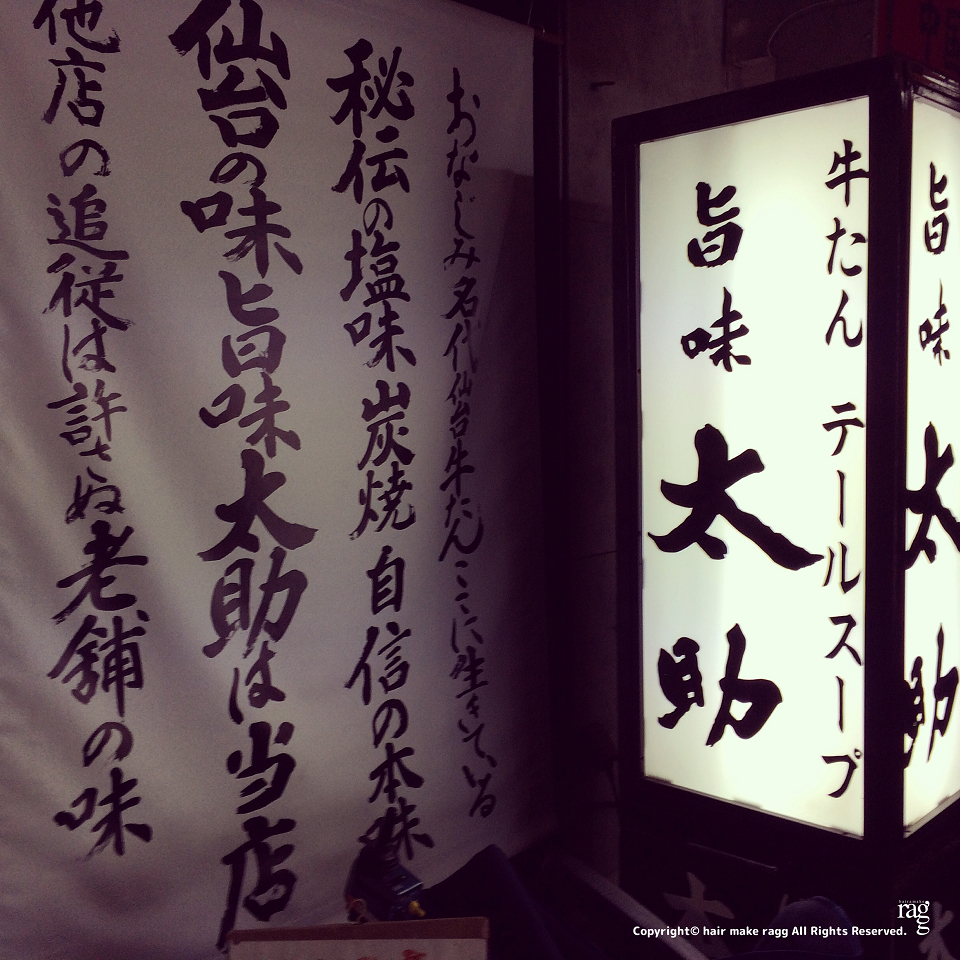 おなじみ名代仙台牛たんここに生きている
秘伝の塩味炭焼 自信の本味
仙台の味旨味太助は当店
他店の追従は許さぬ老舗の味
牛たん テールスープ
旨味太助
旨味太助
ragg
Copyright© hair make ragg All Rights Reserved.